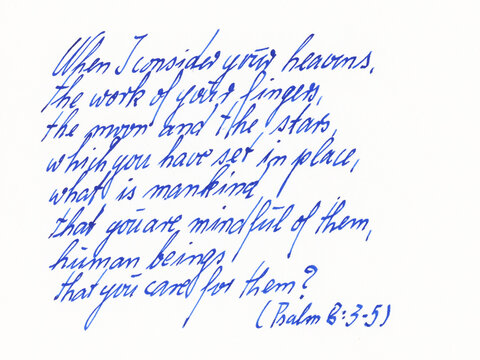 When I consider your heavens,
the work of your fingers,
the moon and the stars,
which you have set in place,
what is mankind
that you are mindful of them,
human beings
that you care for them?
(Psalm 8:3-5)